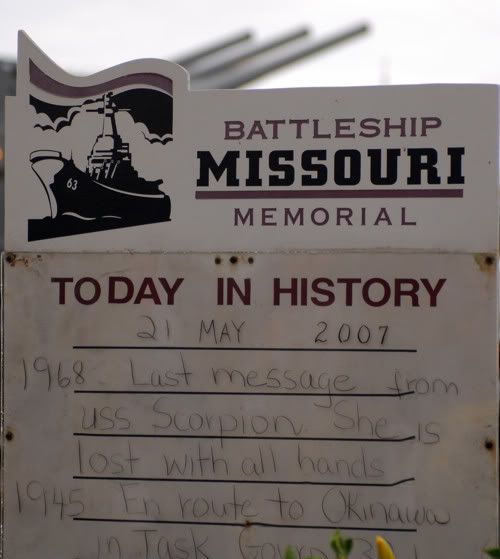 63
BATTLESHIP
MISSOURI
MEMORIAL
TODAY IN HISTORY
21 MAY 2007
1968 Last message from
USS Scorpion. She is
lost with all hands
1945 En route to Okinawa
in Task